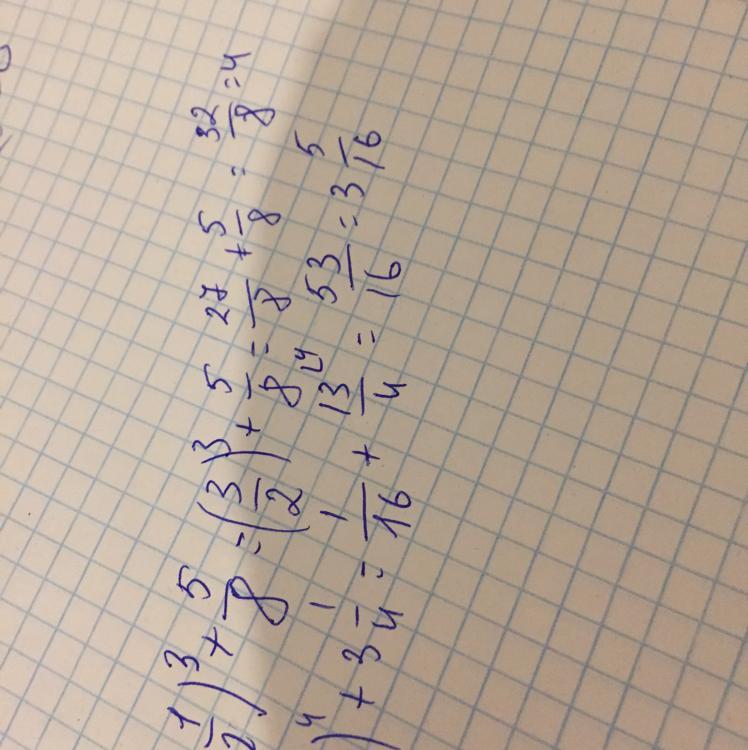 1/2)³ + 5/8 = (3/2)³ + 5/8 = 27/8 + 5/8 = 32/8 = 4
)⁴ + 3 1/4 = 1/16 + 13/4 ⁴ = 53/16 = 3 5/16